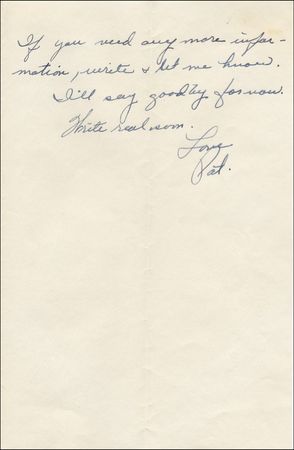 If you need any more infor-
mation, write & let me know.
I'll say goodby for now.
Write real soon.
Love
Pat.